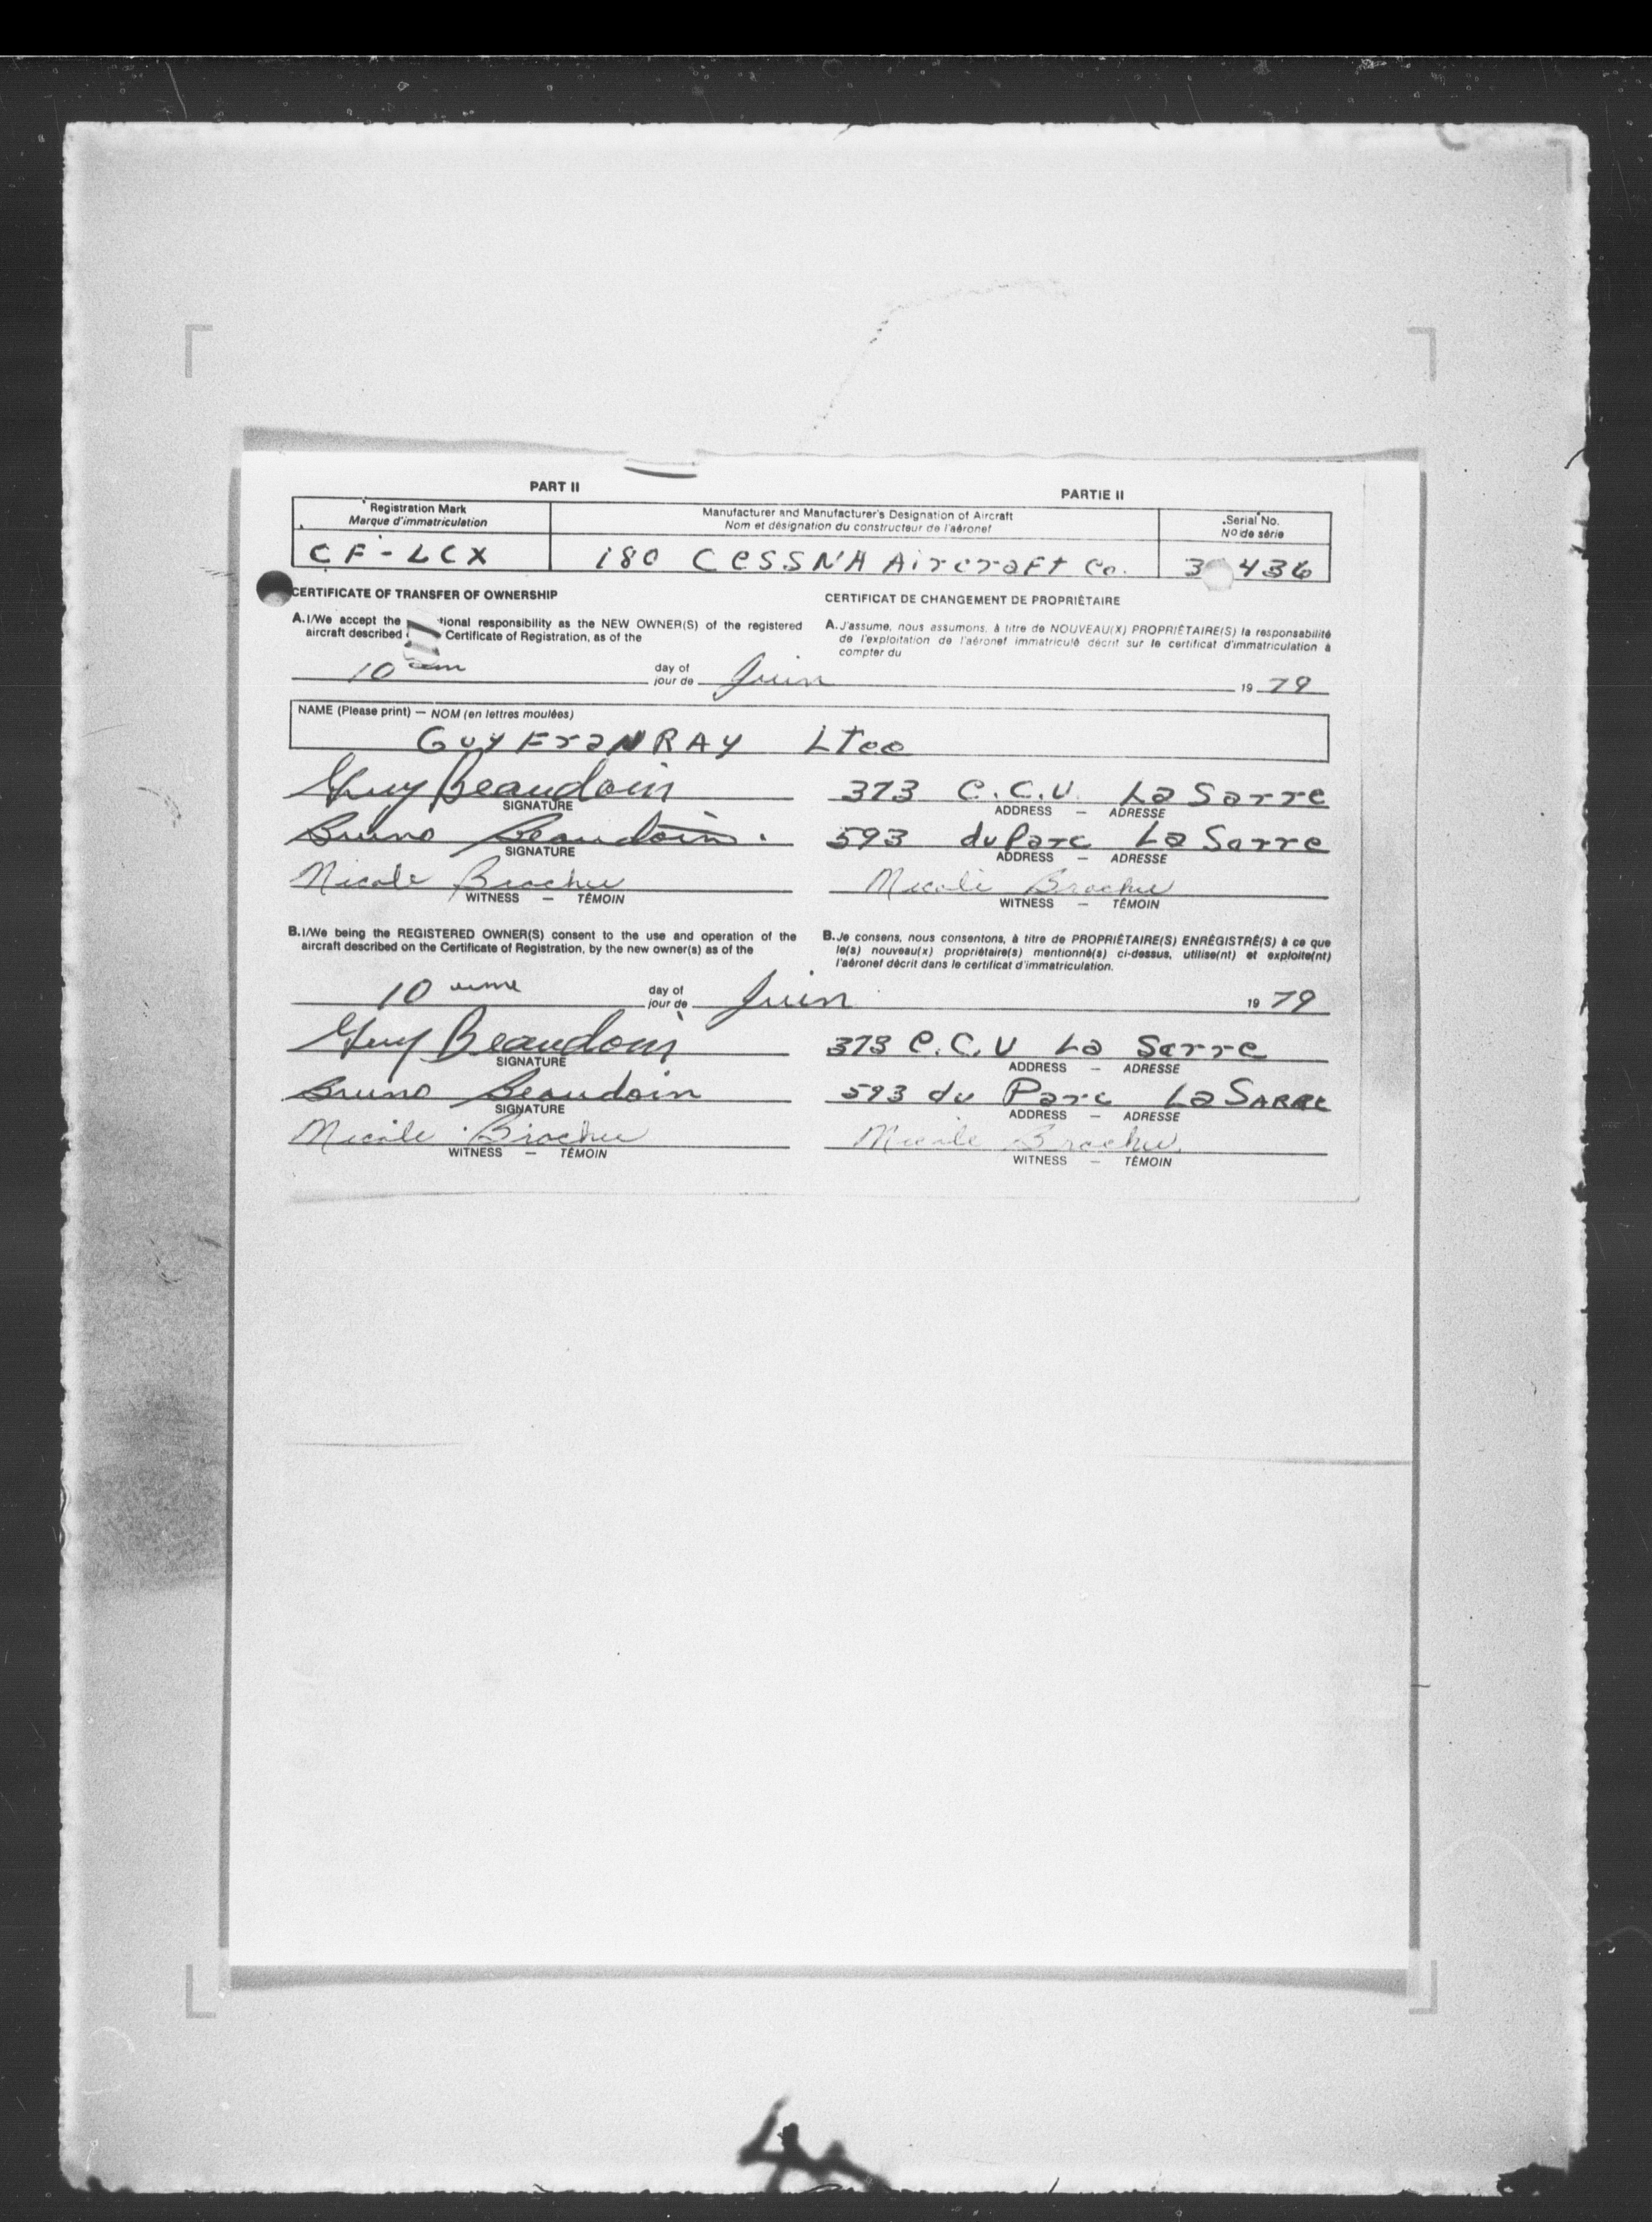 PART II PARTIE II
Registration Mark Manufacturer and Manufacturer's Designation of Aircraft Serial No.
Marque d'immatriculation Nom et désignation du constructeur de l'aéronef No de série
CF-LCX 180 CESSNA Aircraft Co. 3 436
CERTIFICATE OF TRANSFER OF OWNERSHIP CERTIFICAT DE CHANGEMENT DE PROPRIÉTAIRE
A. I/We accept the tional responsibility as the NEW OWNER(S) of the registered
aircraft described Certificate of Registration, as of the
A. J'assume, nous assumons, à titre de NOUVEAU(X) PROPRIÉTAIRE(S) la responsabilité
de l'exploitation de l'aéronef immatriculé décrit sur le certificat d'immatriculation à
compter du
10 day of Juin 19 79
jour de
NAME (Please print) — NOM (en lettres moulées)
GUY FraNRAY Ltee
Guy Beaudoin 373 C.C.V. La Sarre
SIGNATURE ADDRESS — ADRESSE
Bruno Beaudoin. 593 du Parc La Sarre
SIGNATURE ADDRESS — ADRESSE
Nicole Brochu Nicole Brochu
WITNESS — TÉMOIN WITNESS — TÉMOIN
B. I/We being the REGISTERED OWNER(S) consent to the use and operation of the
aircraft described on the Certificate of Registration, by the new owner(s) as of the
B. Je consens, nous consentons, à titre de PROPRIÉTAIRE(S) ENRÉGISTRÉ(S) à ce que
le(s) nouveau(x) propriétaire(s) mentionné(s) ci-dessus, utilise(nt) et exploite(nt)
l'aéronef décrit dans le certificat d'immatriculation.
10 ieme day of Juin 19 79
jour de
Guy Beaudoin 373 C.C.V La Sarre
SIGNATURE ADDRESS — ADRESSE
Bruno Beaudoin 593 du Parc La SARRE
SIGNATURE ADDRESS — ADRESSE
Nicole Brochu Nicole Brochu
WITNESS — TÉMOIN WITNESS — TÉMOIN